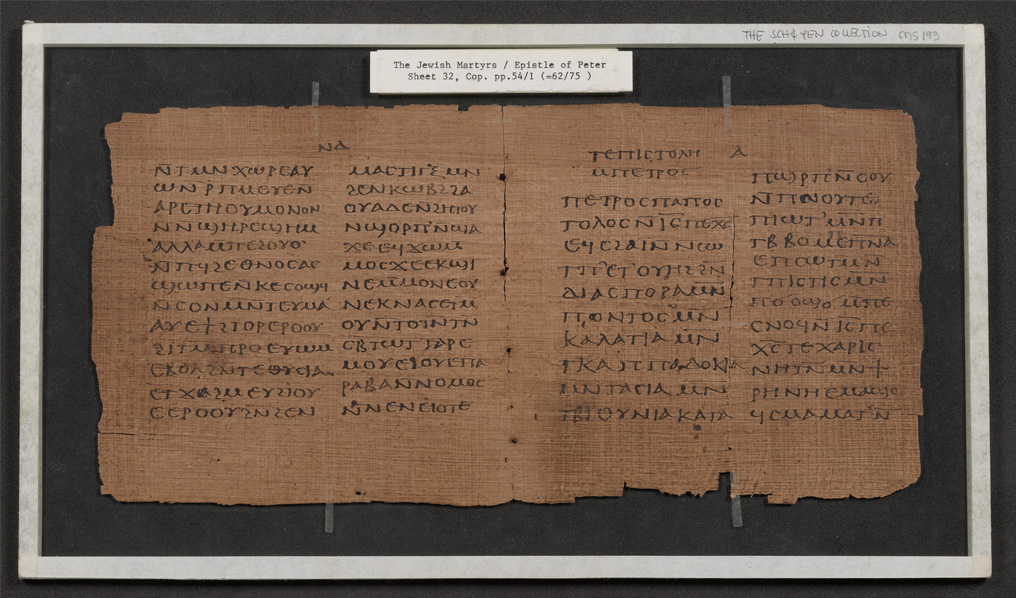 THE SCHØYEN COLLECTION MS 193
The Jewish Martyrs / Epistle of Peter
Sheet 32, Cop. pp.54/1 (=62/75 )
ⲛⲇ
ⲛ̄ⲧⲙⲛⲭⲱⲣⲉⲁⲩ
ⲱⲛ ⲣ̄ⲡⲙⲉⲩⲉⲛ
ⲁⲣⲉⲧⲏⲟⲩⲙⲟⲛⲟⲛ
ⲛⲛϣⲏⲣⲉϣⲏⲙ
ⲁⲗⲗⲁⲙⲡⲉϩⲟⲩⲟ
ⲙⲡϥϩⲉⲑⲛⲟⲥⲁⲥ
ϣⲱⲡⲉⲛⲕⲉⲥⲟⲡ
ⲛⲥⲟⲛⲙⲛⲧⲉⲩⲙⲁ
ⲁⲩⲉⲓ
ϩⲓⲧⲙⲡⲣⲟ
ⲉⲃⲟⲗϩⲛⲧⲉⲑⲩⲥⲓⲁ
ⲉⲧϫⲁϩⲙ
ⲉϩⲣⲟⲟⲩϩⲛϩⲉⲛ
ⲙⲁⲥⲧⲓⲅⲝ ⲙⲛ
ϩⲉⲛⲕⲱⲃϩϩⲁ
ⲟⲩⲁⲇⲉⲛϩⲏⲧⲟⲩ
ⲛϣⲟⲣⲡⲛϣⲁ
ϫⲉⲉϥϫⲱⲙ
ⲙⲟⲥϫⲉⲉⲕϣⲓ
ⲛⲉⲙⲙⲟⲛⲉⲟⲩ
ⲛⲉⲕⲛⲁⲥⲉⲓⲙ
ⲟⲩⲛ̄ⲧⲟⲓⲛⲧⲛ
ⲥⲃⲧⲱⲧⲅⲁⲣⲉ
ⲙⲟⲩⲉϩⲟⲩⲉⲡⲁ
ⲣⲁⲃⲁⲛⲛⲟⲙⲟⲥ
ⲛ̄ⲛⲉⲛⲉⲓⲟⲧⲉ
ⲧⲉⲡⲓⲥⲧⲟⲗⲏ ⲁ
ⲙⲡⲉⲧⲣⲟⲥ
ⲡⲉⲧⲣⲟⲥⲡⲁⲡⲟⲥ
ⲧⲟⲗⲟⲥⲛ̄ⲓ̅ⲥ̅ⲡⲉⲭ̅ⲥ̅
ⲉϥⲥϩⲁⲓⲛⲛⲥⲱ
ⲧⲡ̄ⲉⲧⲟⲩⲏϩϩⲛ
ⲇⲓⲁⲥⲡⲟⲣⲁⲙ̄ⲛ
ⲡⲟⲛⲧⲟⲥⲙ̄ⲛ
ⲕⲁⲗⲁⲧⲓⲁ ⲙⲛ
ⲧⲕⲁⲡⲡⲁⲇⲟⲕⲓⲁ
ⲙⲛⲧⲁⲥⲓⲁ ⲙⲛ
ⲧⲃⲓⲑⲩⲛⲓⲁⲕⲁⲧⲁ
ⲡϣⲣ̄ⲡ̄ⲛⲥⲟⲟⲩ
ⲛ̄ⲡⲛⲟⲩⲧⲉ
ⲡⲓⲱⲧ ⲙⲛⲡ
ⲧⲃⲃⲟⲙⲡⲉⲡ̅ⲛ̅ⲁ̅
ⲉⲡⲥⲱⲧⲙⲛ
ⲧⲡⲓⲥⲧⲓⲥⲙ̄ⲛ
ⲡϭⲟϣϭϣ ⲙⲡⲉ
ⲥⲛⲟϥⲛ̄ⲓ̅ⲥ̅ⲡⲉ
ⲭ̅ⲥ̅ⲧⲉⲭⲁⲣⲓⲥ
ⲛⲏⲧⲛ ⲙⲛ ϯ
ⲣⲏⲛⲏⲉⲙⲁϣⲟ
ϥⲥⲙⲁⲙⲁⲁⲧⲛ